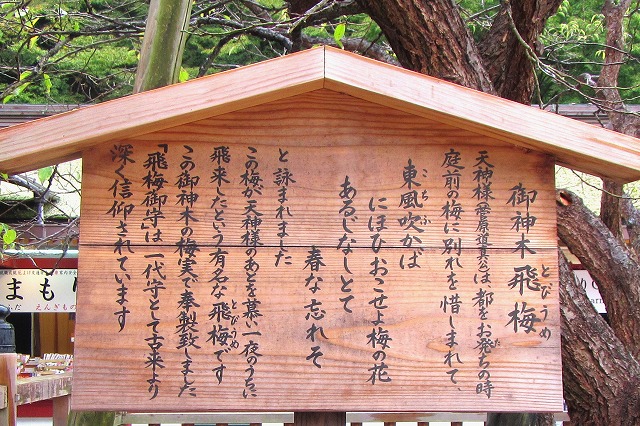 御神木 飛梅
とびうめ
天神様(菅原道真公)は、都をお発ちの時
た
庭前の梅に別れを惜しまれて、
東風吹かば
こちふ
にほひおこせよ梅の花
あるじなしとて
春な忘れそ
と詠まれました
この梅が天神様のあとを慕い一夜のうちに
飛来したという有名な飛梅です
とびうめ
この御神木の梅実で奉製致しました
「飛梅御守」は一代守として古来より
深く信仰されています
まもり
ふだ えんぎもの